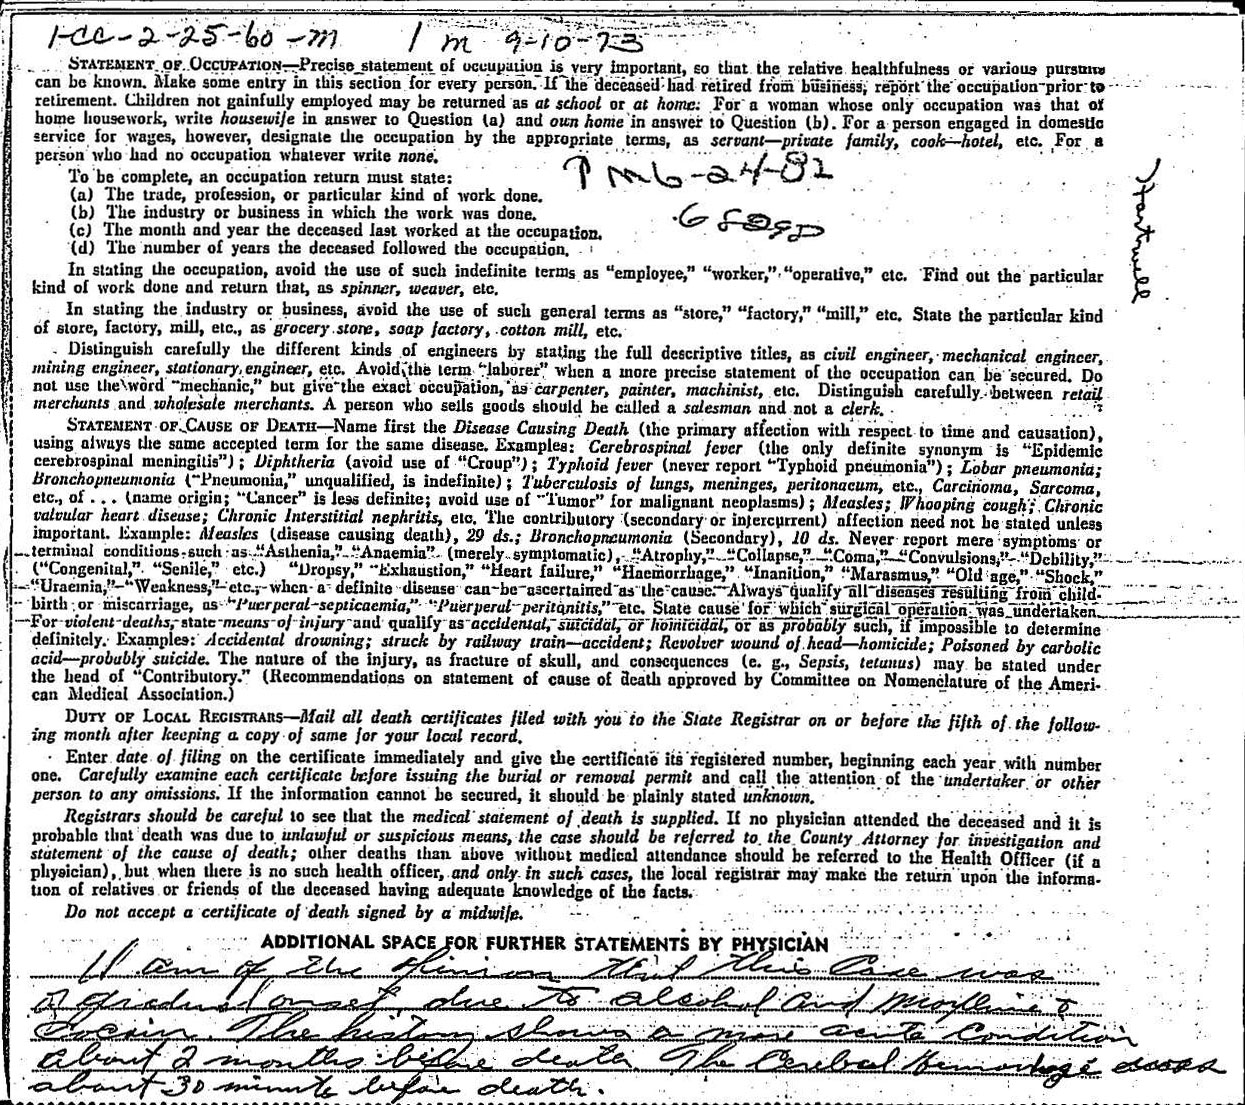 1-CC-2-25-60-m 1 m 9-10-73
STATEMENT OF OCCUPATION—Precise statement of occupation is very important, so that the relative healthfulness or various pursuits
can be known. Make some entry in this section for every person. If the deceased had retired from business, report the occupation prior to
retirement. Children not gainfully employed may be returned as at school or at home. For a woman whose only occupation was that of
home housework, write housewife in answer to Question (a) and own home in answer to Question (b). For a person engaged in domestic
service for wages, however, designate the occupation by the appropriate terms, as servant—private family, cook—hotel, etc. For a
person who had no occupation whatever write none.
m6-24-82
To be complete, an occupation return must state:
(a) The trade, profession, or particular kind of work done.
(b) The industry or business in which the work was done.
(c) The month and year the deceased last worked at the occupation.
(d) The number of years the deceased followed the occupation.
Hartwell
In stating the occupation, avoid the use of such indefinite terms as "employee," "worker," "operative," etc. Find out the particular
kind of work done and return that, as spinner, weaver, etc.
In stating the industry or business, avoid the use of such general terms as "store," "factory," "mill," etc. State the particular kind
of store, factory, mill, etc., as grocery store, soap factory, cotton mill, etc.
Distinguish carefully the different kinds of engineers by stating the full descriptive titles, as civil engineer, mechanical engineer,
mining engineer, stationary engineer, etc. Avoid the term "laborer" when a more precise statement of the occupation can be secured. Do
not use the word "mechanic," but give the exact occupation, as carpenter, painter, machinist, etc. Distinguish carefully between retail
merchants and wholesale merchants. A person who sells goods should be called a salesman and not a clerk.
STATEMENT OF CAUSE OF DEATH—Name first the Disease Causing Death (the primary affection with respect to time and causation),
using always the same accepted term for the same disease. Examples: Cerebrospinal fever (the only definite synonym is "Epidemic
cerebrospinal meningitis"); Diphtheria (avoid use of "Croup"); Typhoid fever (never report "Typhoid pneumonia"); Lobar pneumonia;
Bronchopneumonia ("Pneumonia," unqualified, is indefinite); Tuberculosis of lungs, meninges, peritonaeum, etc., Carcinoma, Sarcoma,
etc., of . . . (name origin; "Cancer" is less definite; avoid use of "Tumor" for malignant neoplasms); Measles; Whooping cough; Chronic
valvular heart disease; Chronic Interstitial nephritis, etc. The contributory (secondary or intercurrent) affection need not be stated unless
important. Example: Measles (disease causing death), 29 ds.; Bronchopneumonia (Secondary), 10 ds. Never report mere symptoms or
terminal conditions such as "Asthenia," "Anaemia" (merely symptomatic), "Atrophy," "Collapse," "Coma," "Convulsions," "Debility,"
("Congenital," "Senile," etc.) "Dropsy," "Exhaustion," "Heart failure," "Haemorrhage," "Inanition," "Marasmus," "Old age," "Shock,"
"Uraemia," "Weakness," etc., when a definite disease can be ascertained as the cause. Always qualify all diseases resulting from child-
birth or miscarriage, as "Puerperal septicaemia," "Puerperal peritonitis," etc. State cause for which surgical operation was undertaken.
For violent deaths, state means of injury and qualify as accidental, suicidal, or homicidal, or as probably such, if impossible to determine
definitely. Examples: Accidental drowning; struck by railway train—accident; Revolver wound of head—homicide; Poisoned by carbolic
acid—probably suicide. The nature of the injury, as fracture of skull, and consequences (e. g., Sepsis, tetanus) may be stated under
the head of "Contributory." (Recommendations on statement of cause of death approved by Committee on Nomenclature of the Ameri-
can Medical Association.)
DUTY OF LOCAL REGISTRARS—Mail all death certificates filed with you to the State Registrar on or before the fifth of the follow-
ing month after keeping a copy of same for your local record.
Enter date of filing on the certificate immediately and give the certificate its registered number, beginning each year with number
one. Carefully examine each certificate before issuing the burial or removal permit and call the attention of the undertaker or other
person to any omissions. If the information cannot be secured, it should be plainly stated unknown.
Registrars should be careful to see that the medical statement of death is supplied. If no physician attended the deceased and it is
probable that death was due to unlawful or suspicious means, the case should be referred to the County Attorney for investigation and
statement of the cause of death; other deaths than above without medical attendance should be referred to the Health Officer (if a
physician), but when there is no such health officer, and only in such cases, the local registrar may make the return upon the informa-
tion of relatives or friends of the deceased having adequate knowledge of the facts.
Do not accept a certificate of death signed by a midwife.
ADDITIONAL SPACE FOR FURTHER STATEMENTS BY PHYSICIAN
I am of the opinion that this Case was
of gradual onset due to alcohol and Morphine &
Cocain. The history shows a more acute Condition
about 2 months before death. The Cerebral Hemorhage
about 30 minute before death.